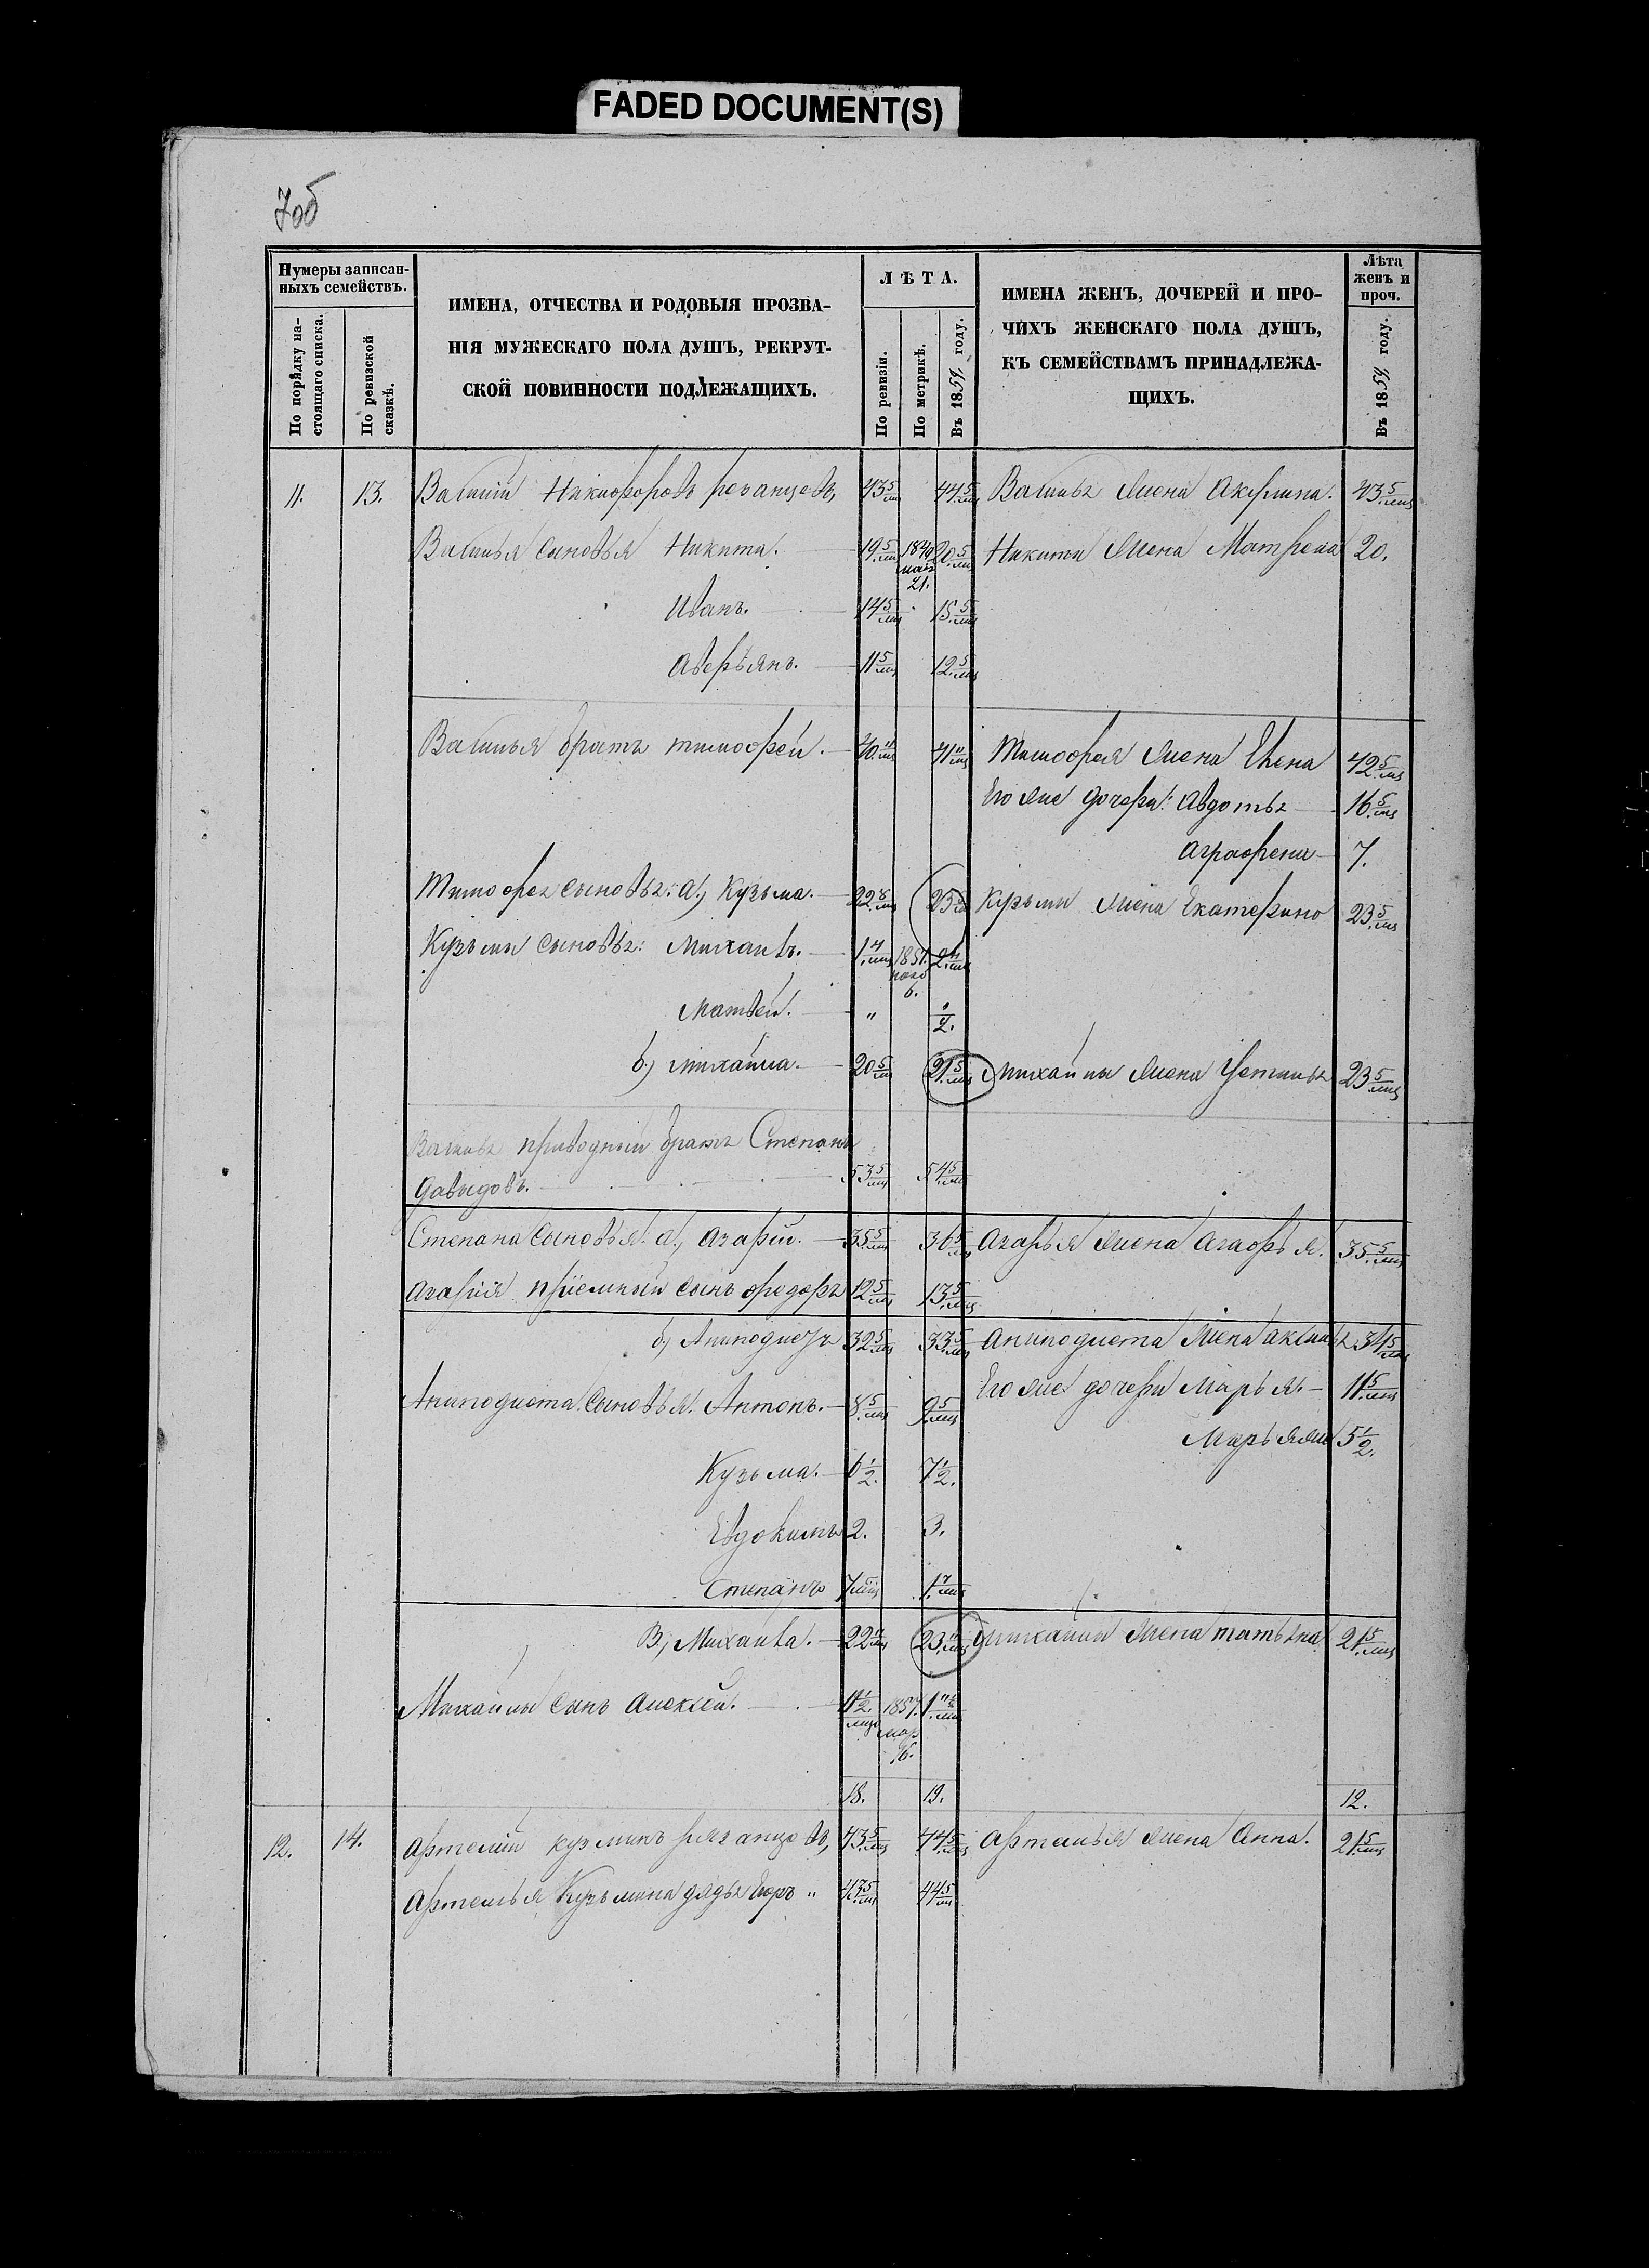 FADED DOCUMENT(S)
7об
Нумеры записан-
ныхъ семействъ.
По порядку на-
стоящаго списка.
По ревизской
сказкѣ.
ИМЕНА, ОТЧЕСТВА И РОДОВЫЯ ПРОЗВА-
НІЯ МУЖЕСКАГО ПОЛА ДУШЪ, РЕКРУТ-
СКОЙ ПОВИННОСТИ ПОДЛЕЖАЩИХЪ.
ЛѢТА.
По ревизіи.
По метрикѣ.
Въ 1854 году.
ИМЕНА ЖЕНЪ, ДОЧЕРЕЙ И ПРО-
ЧИХЪ ЖЕНСКАГО ПОЛА ДУШЪ,
КЪ СЕМЕЙСТВАМЪ ПРИНАДЛЕЖА-
ЩИХЪ.
Лѣта
женъ и
проч.
Въ 1854 году.
11. 13. Василій Никифоровъ резанцовъ, 43 5/мц 44 5/мц Василья жена Акулина. 43 5/мц
Василья сыновья Никита. 19 5/мц 20 5/мц Никиты жена Матрена 20.
21.
Иванъ. 14 5/мц 15 5/мц
Аверьянъ. 11 5/мц 12 5/мц
Василья братъ тимофей. 40 11/мц 41 11/мц Тимофея жена Елена 42 5/мц
Его же дочери: Авдотья 16 5/мц
Аграфена 7.
Тимофея сыновья: а, Кузьма. 22 8/мц Кузьмы жена Екатерина 23 5/мц
Кузьмы сыновья: Михаилъ. 1 4/мц 1851. 2 4/мц
6.
Матвей. " 1/2.
б, михайла. 20 5/мц 21 5/мц михайлы жена Устинья 23 5/мц
Василья двоюродный братъ Степанъ
Давыдовъ. 53 5/мц 54 5/мц
Степана сыновья: а, Азарій. 35 5/мц 36 5/мц Азарья жена Агафья. 35 5/мц
Азарія пріемный сынъ федоръ 12 5/мц 13 5/мц
б, Аниподистъ 32 5/мц 33 5/мц Аниподиста жена аксинья 34 5/мц
Аниподиста сыновья: Антонъ. 8 5/мц 9 5/мц Его же дочери Марья. 11 5/мц
Марьяна 5 1/2.
Кузьма. 6 1/2. 7 1/2.
Евдокимъ 2. 3.
Степанъ 7 мц 1 7/мц
В, Михаила. 22 11/мц 23 11/мц михайлы жена татьяна 21 5/мц
Михайлы сынъ Алексей.
16.
18. 19. 12.
12. 14. Артемій кузминъ резанцовъ, 43 5/мц 44 5/мц Артемья жена Анна. 21 5/мц
Артемья Кузьмина дядя " 43 5/мц 44 5/мц